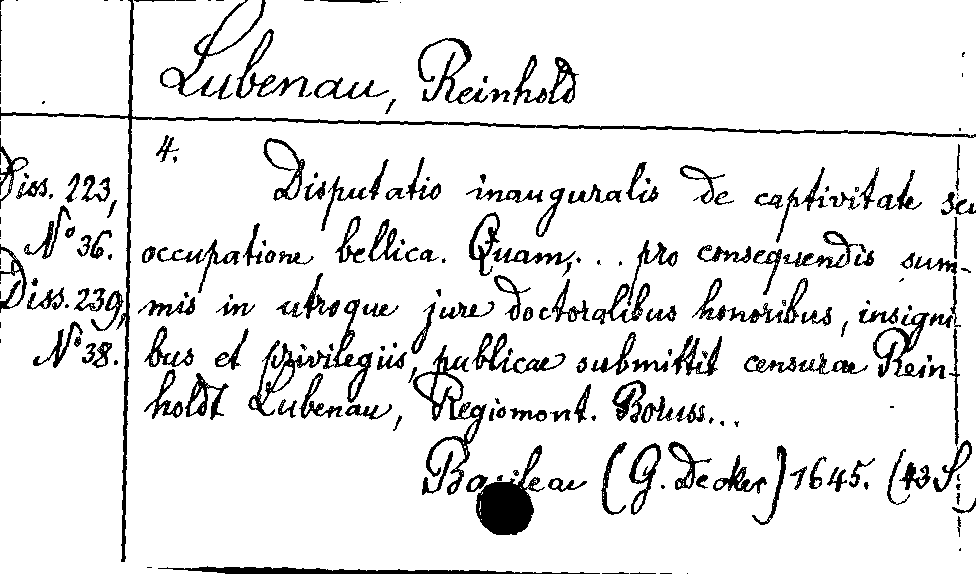 Lubenau, Reinhold
4.
Diss. 223,
Nº 36.
Diss. 239,
Nº 38.
Disputatio inauguralis de captivitate seu
occupatione bellica. Quam,... pro consequendis sum-
mis in utroque jure doctoralibus honoribus, insigni-
bus et privilegiis, publicae submittit censurae Rein-
holdt Lubenau, Regiomont. Boruss...
Basileae (G. Decker) 1645. (43 S.)